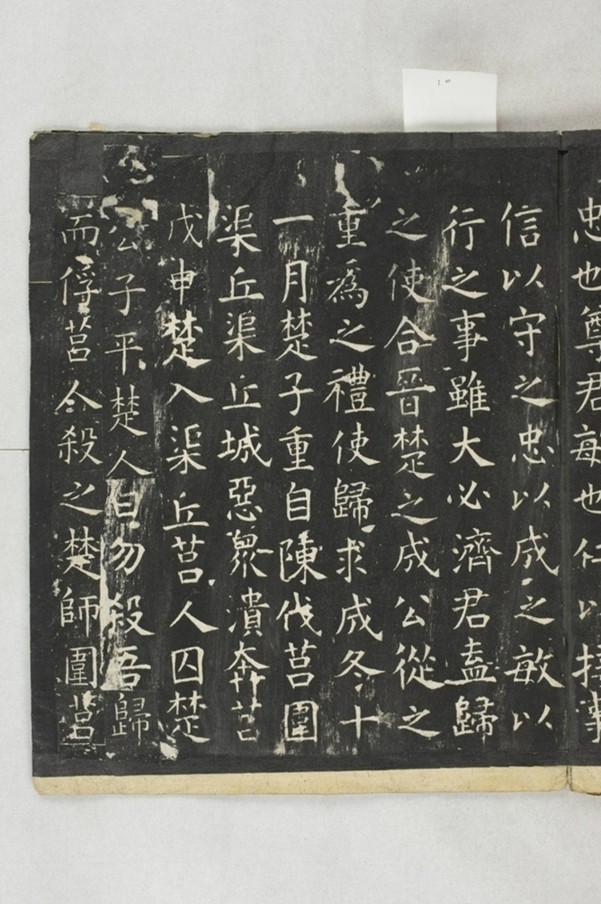 忠也尊君敏也仁以接事
信以守之忠以成之敏以
行之事雖大必濟君盍歸
之使合晉楚之成公從之
重爲之禮使歸求成冬十
一月楚子重自陳伐莒圍
渠丘渠丘城惡衆潰奔莒
戊申楚入渠丘莒人囚楚
公子平楚人曰勿殺吾歸
而俘莒人殺之楚師圍莒